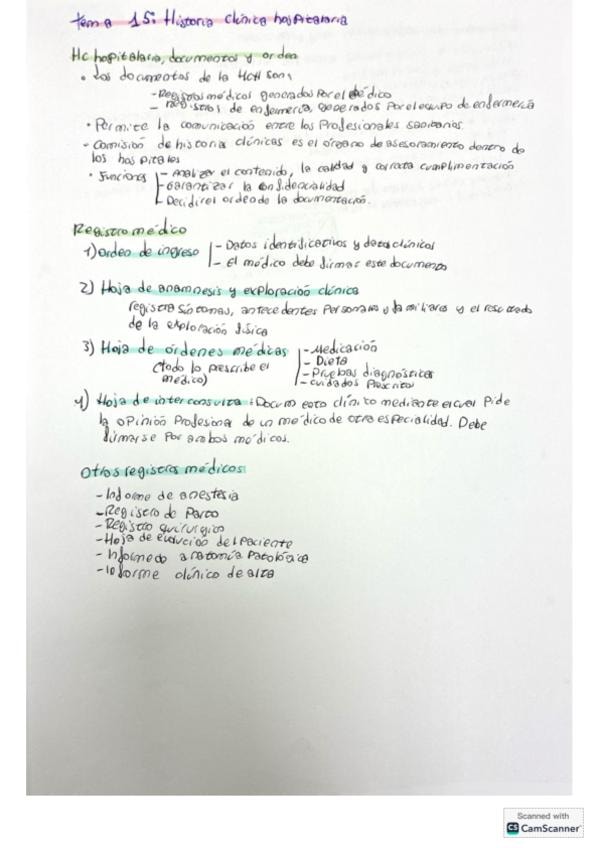 Tema 15: Historia clínica hospitalaria
Hc hopitalaria, documentos y orden
• Los documentos de la HCH son:
- Registros médicos generados por el médico
- registros de enfermería, generados por el equipo de enfermería
• Permite la comunicación entre los Profesionales sanitarios.
- Comisión de historia clínicas es el órgano de asesoramiento dentro de
los hospitales
• Funciones - Analizar el contenido, la calidad y correcta cumplimentación
- Garantizar la confidencialidad
- Decidir el orden de la documentación.
Registro médico
1) Orden de ingreso - Datos identificativos y datos clínicos
- El médico debe firmar este documento
2) Hoja de anamnesis y exploración clínica
registra síntomas, antecedentes personales y familiares y el resultado
de la exploración física
3) Hoja de órdenes médicas - Medicación
(todo lo prescribe el - Dieta
médico) - Pruebas diagnósticas
- cuidados Prescritos
4) Hoja de interconsulta: Documento clínico mediante el cual Pide
la opinión Profesional de un médico de otra especialidad. Debe
firmarse por ambos médicos.
Otros registros médicos
- Informe de anestesia
- Registro de Parto
- Registro quirurgico
- Hoja de evolución del paciente
- Informe de anatomía Patológica
- Informe clínico de alta
Scanned with
CS CamScanner